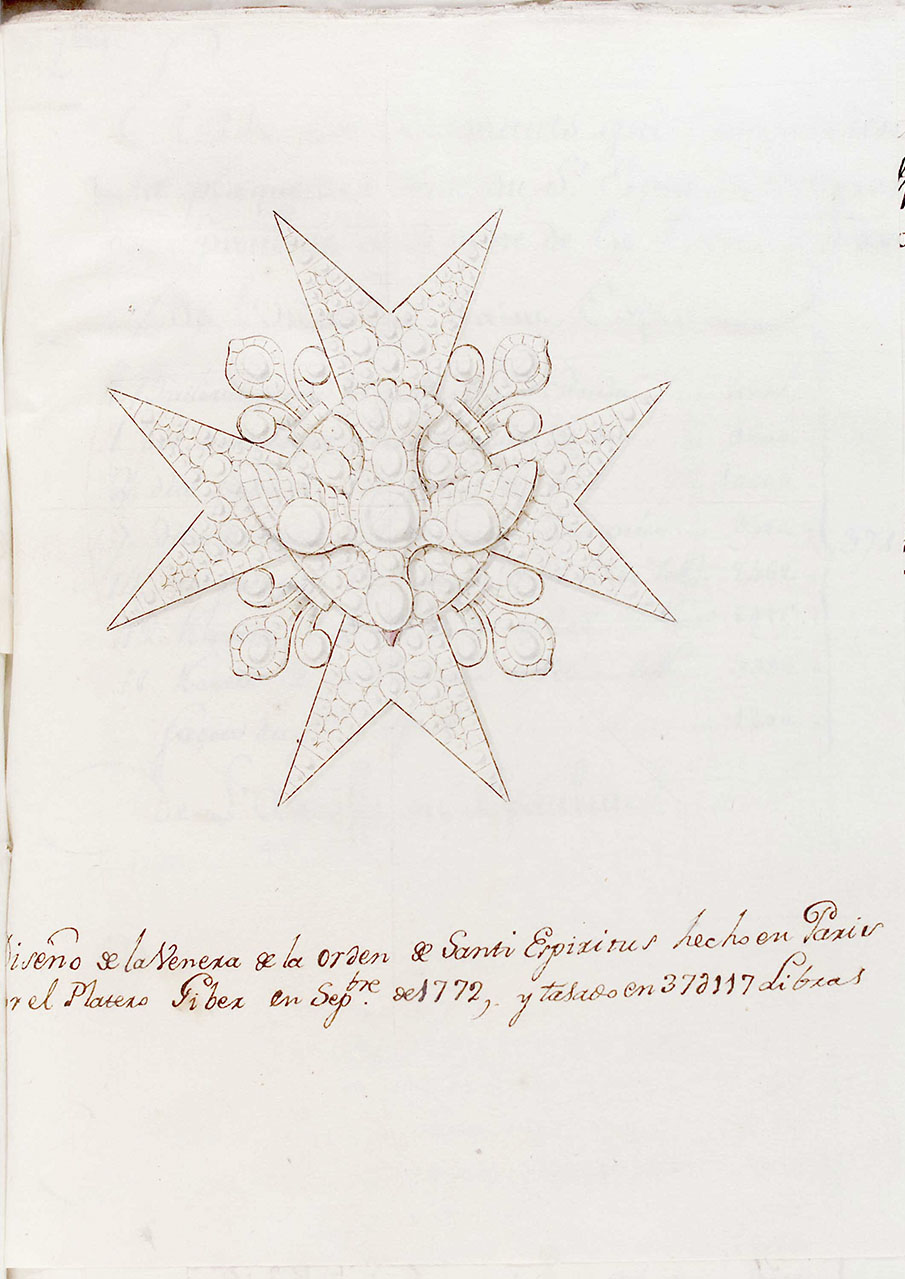 Diseño de la Venera de la orden de Santi Espiritus hecho en Paris
or el Platero Giber en Sepbre. de 1772, y tasado en 37d117 Libras